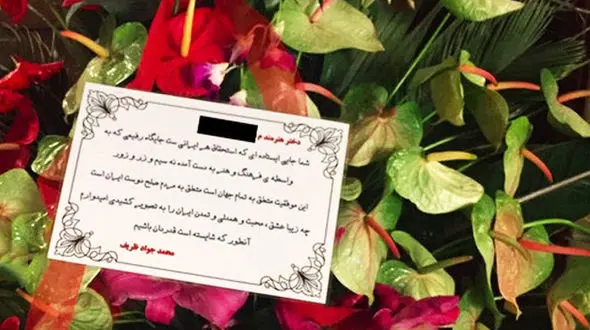 دختر هنرمند م
شما جایی ایستاده ای که استحقاق هر ایرانی ست جایگاه رفیعی که به
واسطه ی فرهنگ و هنر به دست آمده نه سیم و زر و زور
این موفقیت متعلق به تمام جهان است متعلق به مردم صلح دوست ایران است
چه زیبا عشق ، محبت و همدلی و تمدن ایران را به تصویر کشیدی امیدوارم
آنطور که شایسته است قدردان باشیم
محمد جواد ظریف